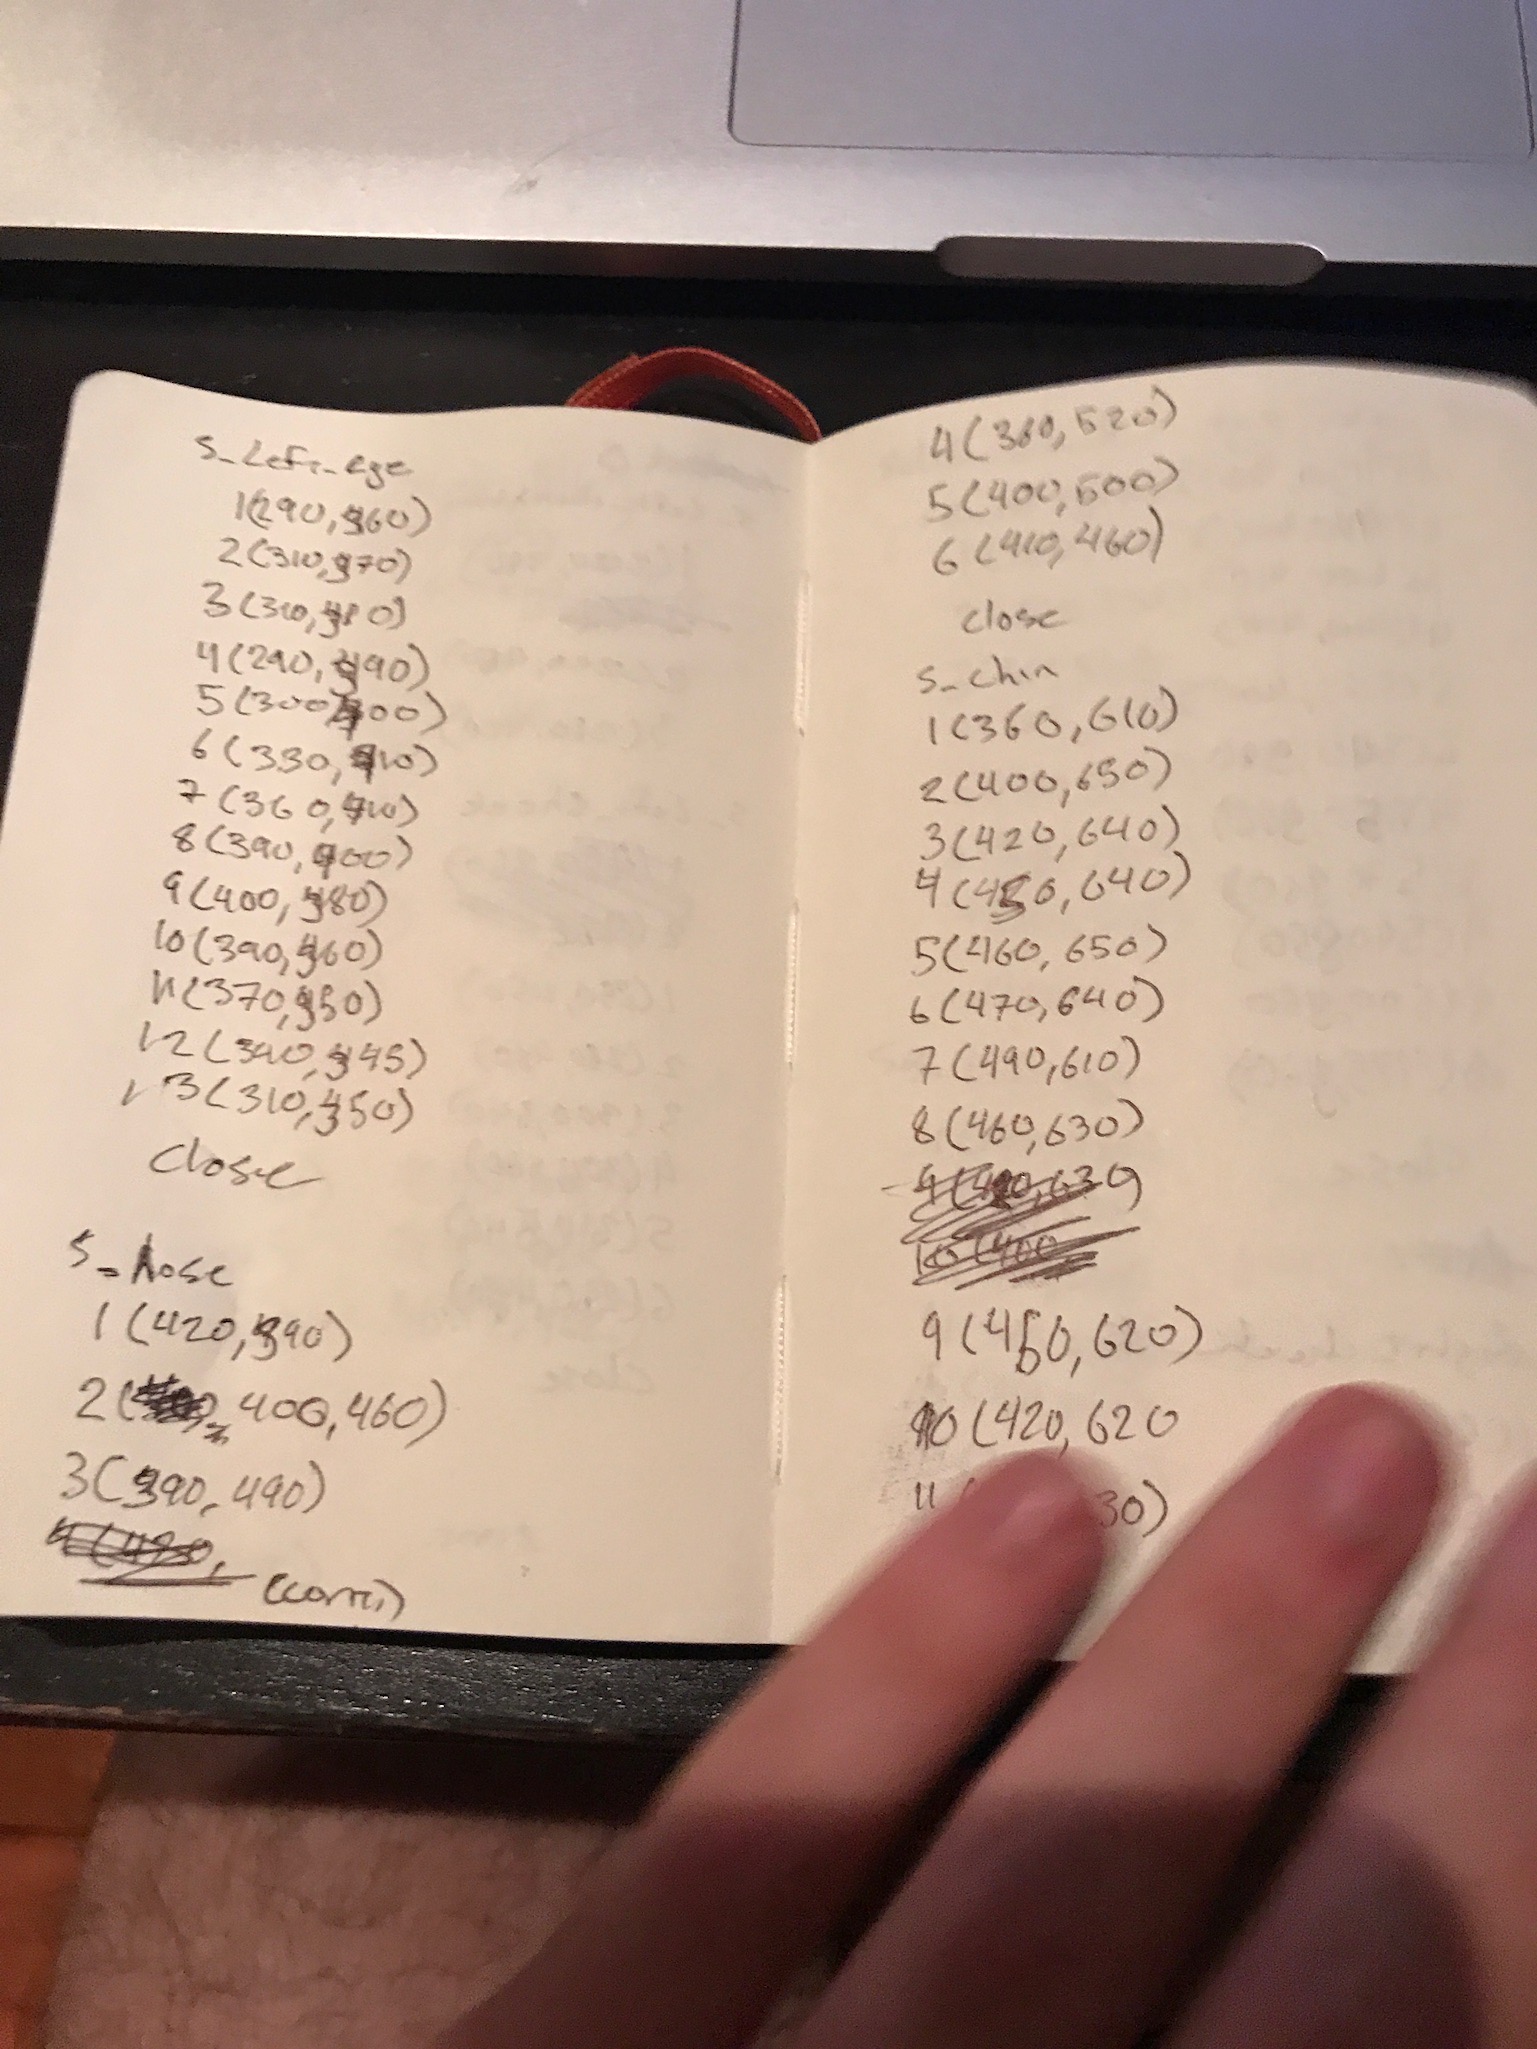 s_Left_eye
1(290,360)
2(310,370)
3(310,380)
4(290,390)
5(300,400)
6(330,410)
7(360,410)
8(390,400)
9(400,380)
10(390,360)
11(370,350)
12(340,345)
13(310,350)
close
s_nose
1(420,390)
2( 400,460)
3(390,490)
(cont.)
4(360,520)
5(400,500)
6(410,460)
close
s_chin
1(360,610)
2(400,650)
3(420,640)
4(450,640)
5(460,650)
6(470,640)
7(490,610)
8(460,630)
9(450,620)
10(420,620
11( 30)